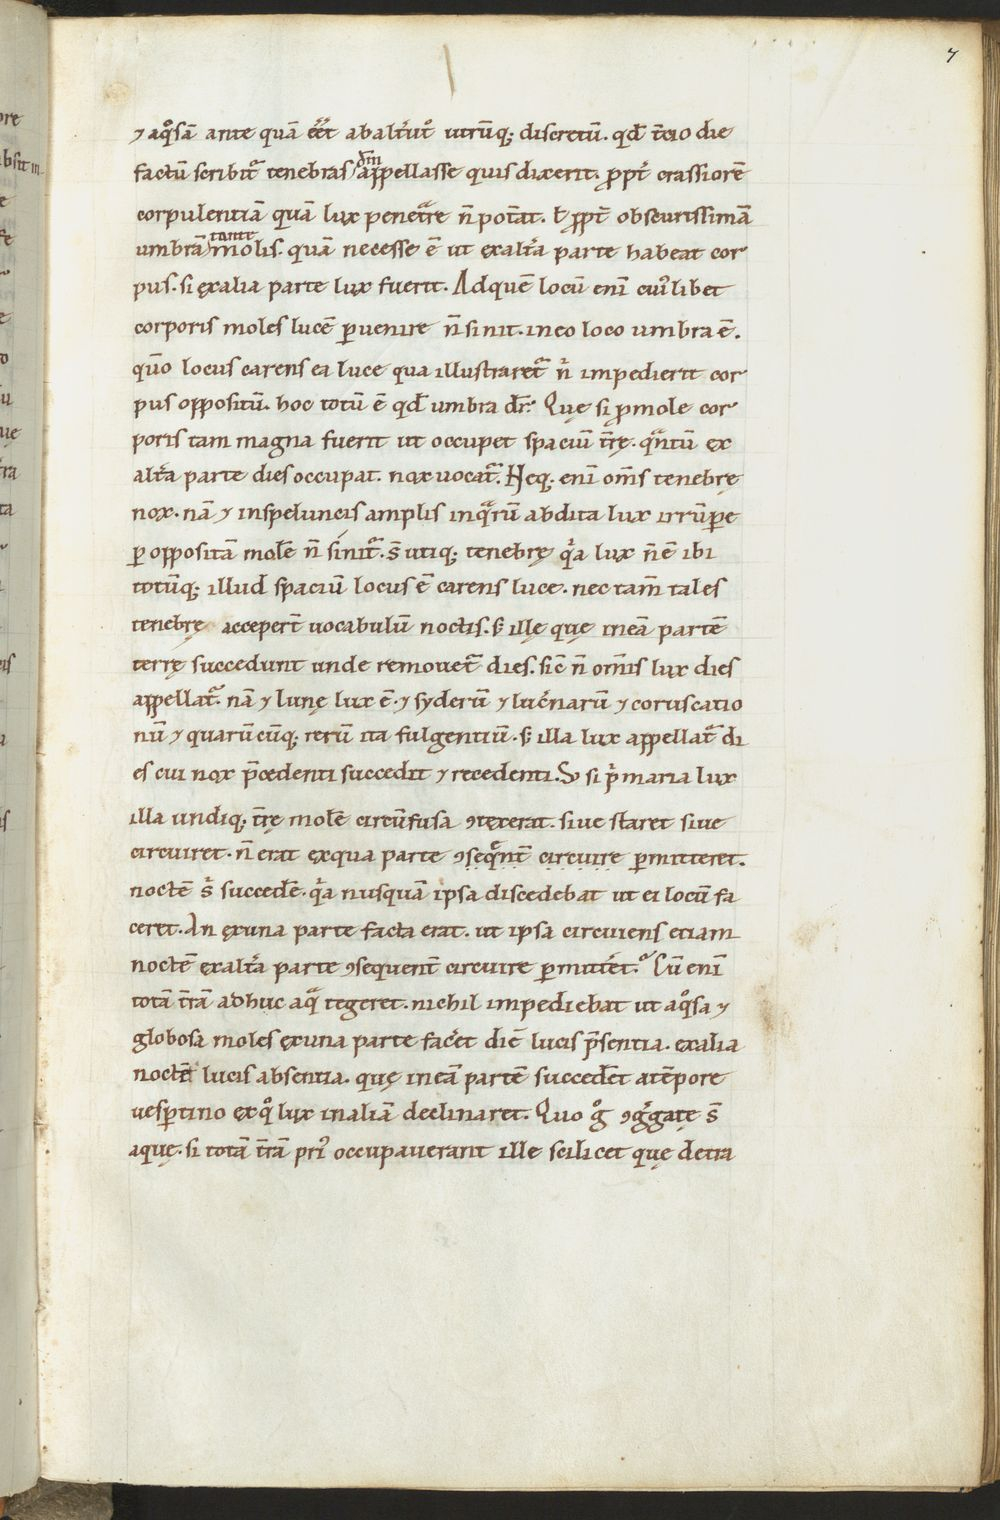 7
⁊ aqͦsā ante quā eēt abaltͥutͦ utrūq; discretū. qđ t̄cio die
factū scribitᷓ tenebras dm̄ appellasse quis dixerit. ꝓpt̄ crassiorē
corpulentiā quā lux penetᷓre n̄ pot̄at. ł ꝓpt̄ obscurissimā
umbrā tante molis. quā necesse ē ut exaltᷓa parte habeat cor
pus. si ęxalia parte lux fuerit. Adquē locū enī cuiͥlibet
corporis moles lucē ꝑuenire n̄ sinit. ineo loco umbra ē.
qm̄o locus carens ea luce qua illustraretᷓ n̄ͥ impedierit cor
pus oppositū. hoc totū ē qđ umbra dr̄. Quę si ꝓmole cor
poris tam magna fuerit ut occupet spaciū t̄rę. qᷓntū ex
altͥa parte dies occupat. nox uocatᷓ. Neq; enī om̄s tenebrę
nox. nā ⁊ inspeluncis amplis inqᷓrū abdita lux irrūꝑe
ꝑ oppositā molē n̄ sinitᷓ. s̄ utiq; tenebrę qͥa lux n̄ ē ibi
totūq; illud spaciū locus ē carens luce. nec tam̄ tales
tenebrę acceper̄t uocabulū noctis. ꝫ illę quę ineā partē
terrę succedunt unde remouetᷓ dies. sic̄ n̄ om̄is lux dies
appellatᷓ. nā ⁊ lunę lux ē. ⁊ syderū ⁊ luc̄narū ⁊ coruscatio
nū ⁊ quarūcūq; rerū ita fulgentiū. ꝫ illa lux appellatᷓ di
es cui nox p̄cedenti succedit ⁊ recedenti. S; si pͥmaria lux
illa undiq; t̄rę molē circūfusa ꝯtexerat. siue staret siue
circuiret. n̄ erat ęxqua parte ꝯseqͣnt̄ circuire ꝑmitteret.
noctē s̄ͥ succedē. qͥa nusquā ipsa discedebat ut ei locū fa
ceret. An ęxuna parte facta erat. ut ipsa circuiens etiam
noctē ęxaltͥa parte ꝯsequent̄ circuire ꝑmittēt. Cū enī
totā t̄rā adhuc aqᷓ tegeret. nichil impediebat ut aqͦsa ⁊
globosa moles ęxuna parte facēt diē lucis p̄sentia. ęxalia
noctē lucis absentia. quę ineā partē succedēt atēpore
uesꝑtino ęxqͦ lux inaliā declinaret. Quo gͦ ꝯgͥgate s̄
aquę. si totā t̄rā priͥ occupauerant ille scilicet quę detra